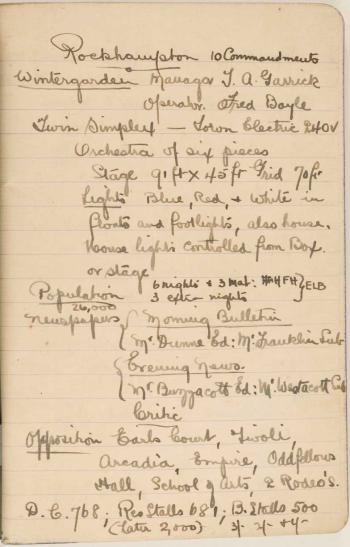 Rockhampton 10 Commandments
Wintergarden Manager T. A. Garrick
Operator. Fred Boyle
Twin Simplex — Town Electric 240V
Orchestra of six pieces
Stage 91 ft x 45 ft Grid 70 ft
Lights Blue, Red, & White in
floats and footlights, also house.
House lights controlled from Box
or stage
Population 6 nights & 3 Mat.
26,000 3 extra nights } ELB
Newspapers { Morning Bulletin
Mr. Dunne Ed: Mr. Franklin Sub
{ Evening News.
Mr. Buzzacott Ed: Mr. Westacott Sub
Critic
Opposition Earls Court, Tivoli,
Arcadia, Empire, Oddfellows
Hall, School of Arts, 2 Rodeo's.
D.C. 768; Res Stalls 681; B. Stalls 500
(Later 2,000) 3/- 2/- & 4/-